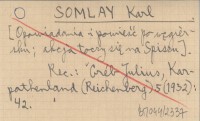 O SOMLAY Karl.
[Opowiadania i powieść po węgier-
sku; akcja toczy się na Spiszu].
Rec.: Gréb Julius, Kar-
pathenland (Reichenberg) 5 (1932):
42.
67044/2337